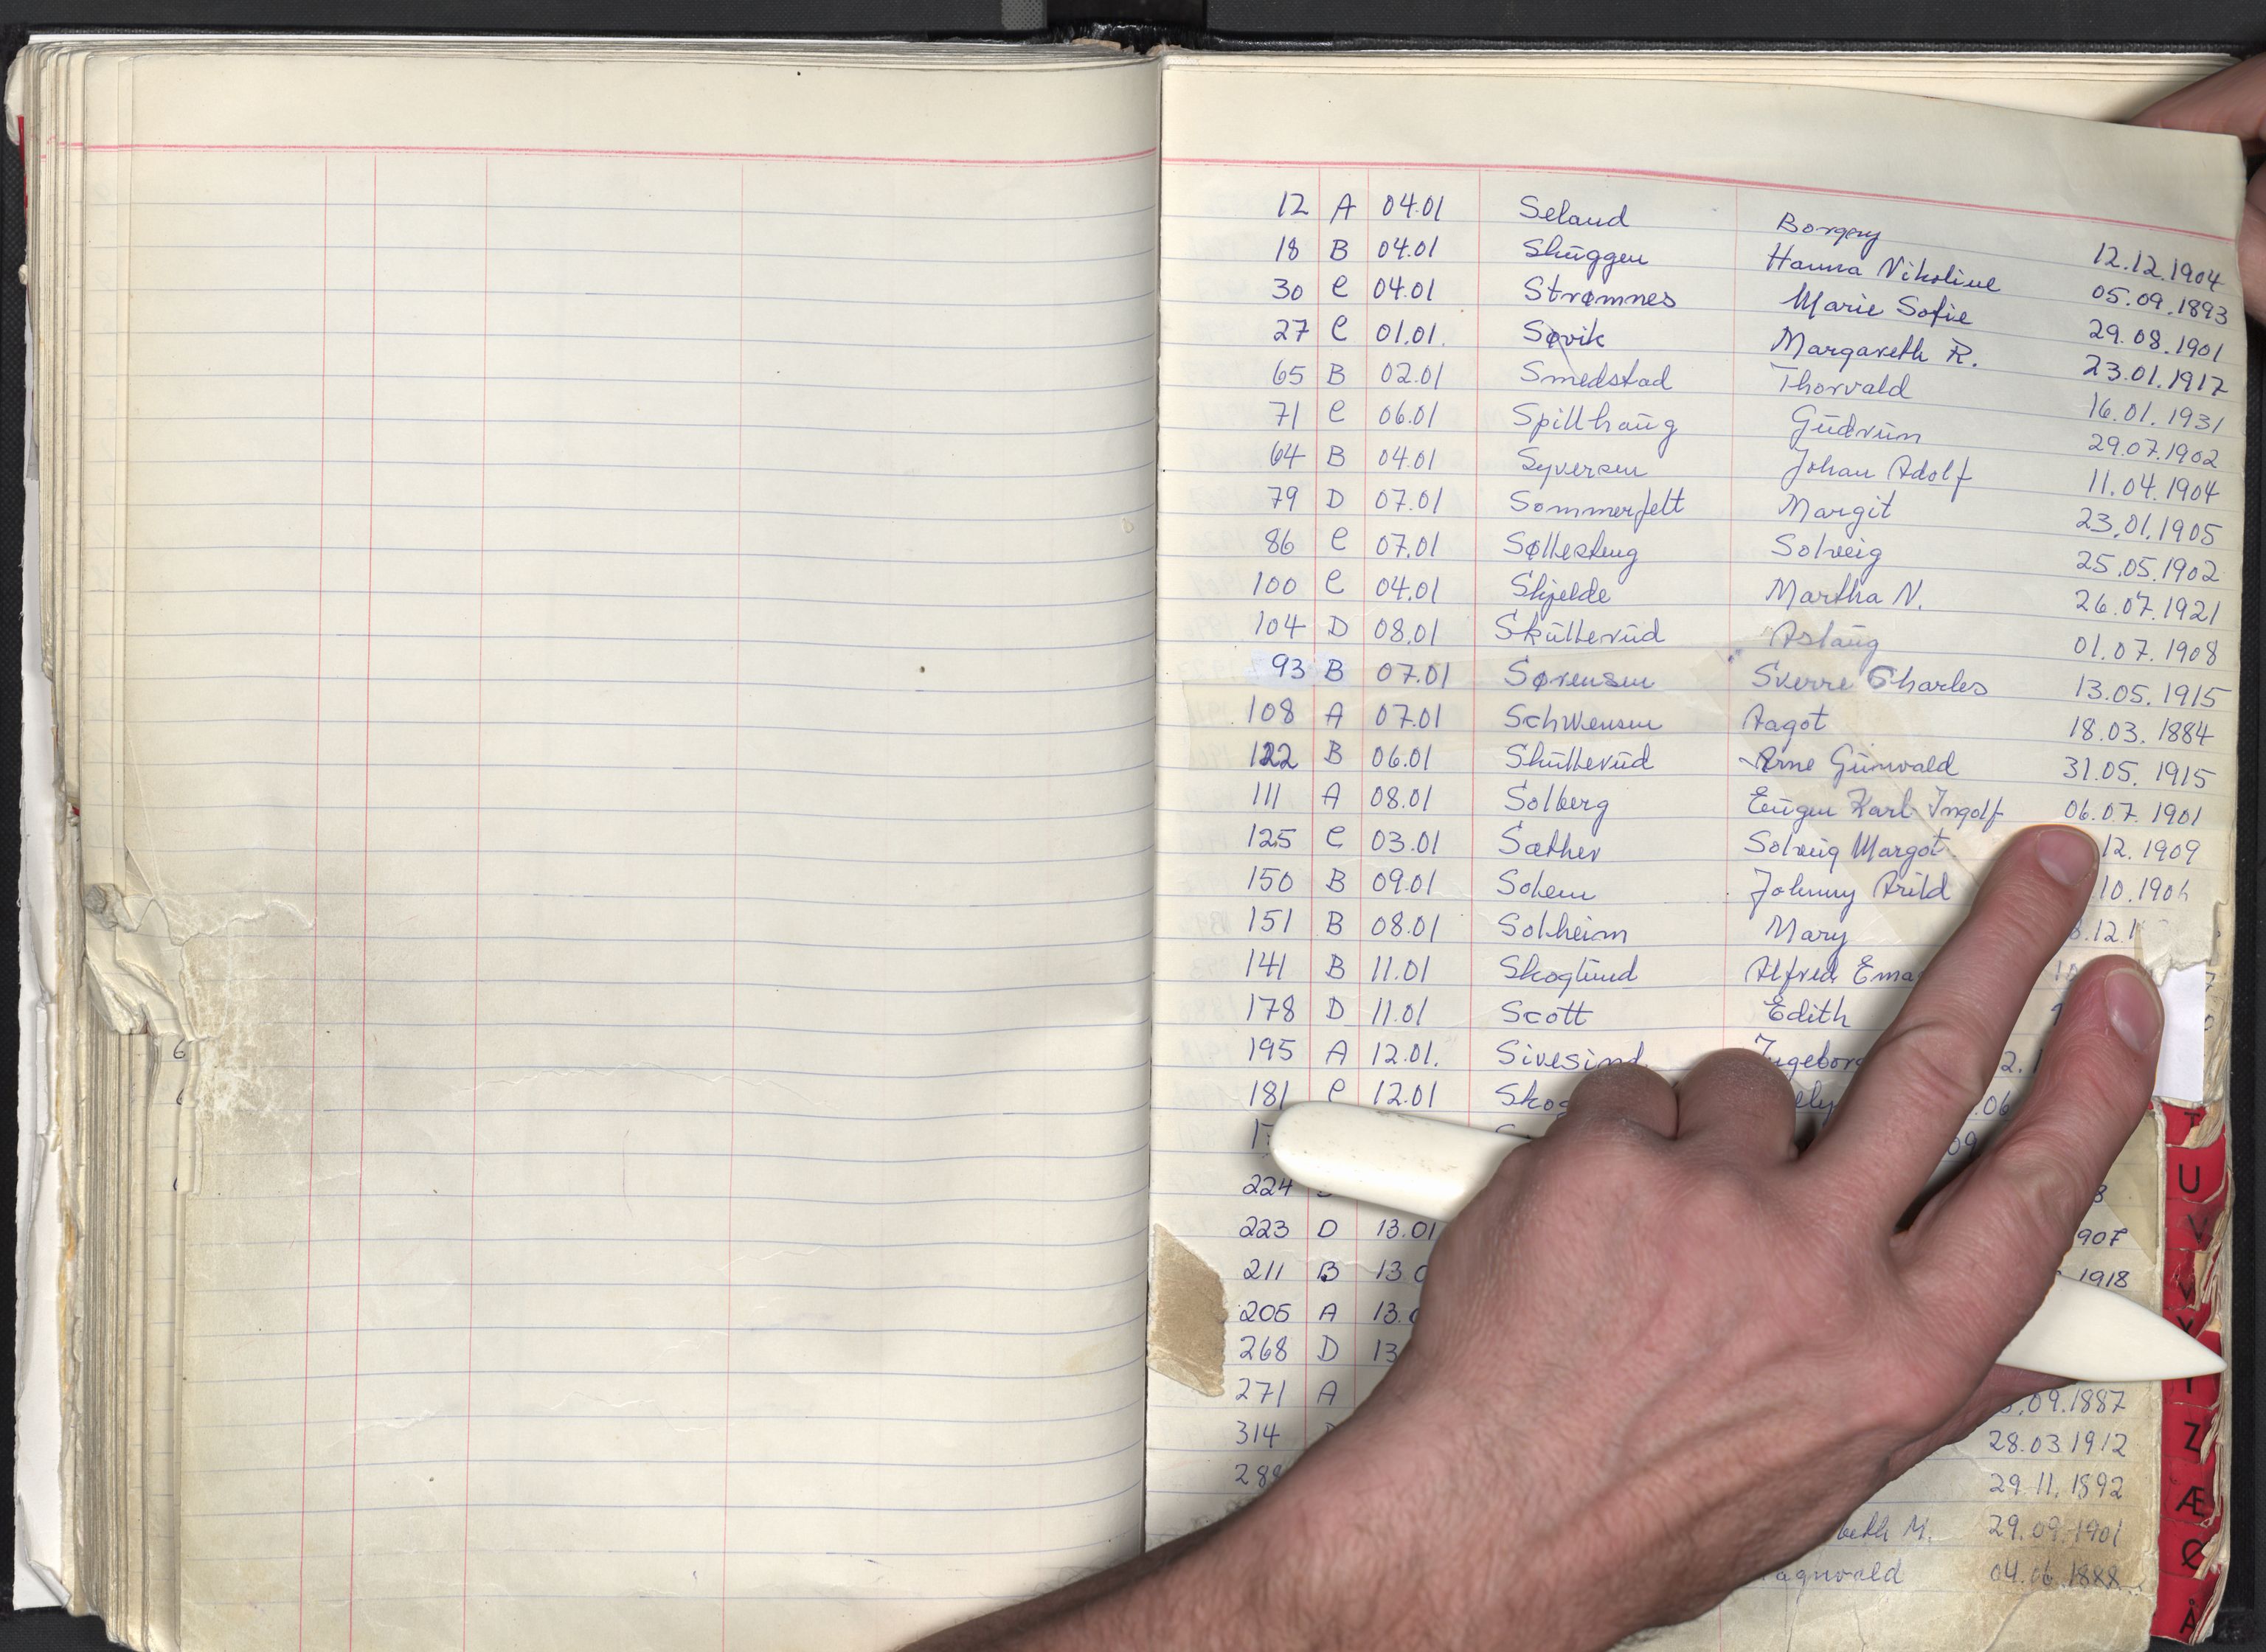 12 A 04.01 Seland Borgny 12.12.1904
18 B 04.01 Skuggen Hanna Nikoline 05.09.1893
30 C 04.01 Strømnes Marie Sofie 29.08.1901
27 C 01.01. Søvik Margareth R. 23.01.1917
65 B 02.01 Smedstad Thorvald 16.01.1931
71 C 06.01 Spillhaug Gudrun 29.07.1902
64 B 04.01 Syversen Johan Adolf 11.04.1904
79 D 07.01 Sommerfelt Margit 23.01.1905
86 C 07.01 Solveig 25.05.1902
100 C 04.01 Skjelde Martha N. 26.07.1921
104 D 08.01 Skullerud Aslaug 01.07.1908
93 B 07.01 Sørensen Sverre Charles 13.05.1915
108 A 07.01 Schwensen Aagot 18.03.1884
122 B 06.01 Skullerud Arne Gunvald 31.05.1915
111 A 08.01 Solberg Eugen Karl Ingolf 06.07.1901
125 C 03.01 Sæther Solveig Margot 12.1909
150 B 09.01 Solem Johnny Arild 10.190
151 B 08.01 Solheim Mary .12.1
141 B 11.01 Skoglund Alfred Ema
178 D 11.01 Scott Edith
195 A 12.01. Sivesind Ingeborg 2.1
181 C 12.01 Skog ely .06
1 09
224
223 D 13.01 907
211 B 13.0 1918
205 A 13.0
268 D 13
271 A .09.1887
314 28.03.1912
28 29.11.1892
beth M. 29.09.1901
agnvald 04.06.1888
6
T
U
V
Z
Æ
Ø
Å